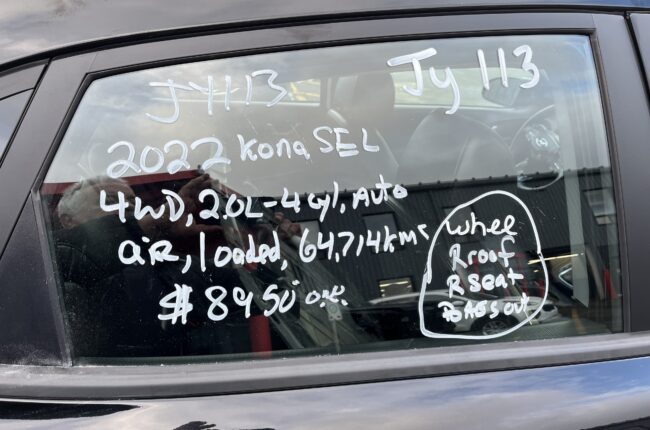 JY113
Jy 113
2022 Kona SEL
4WD, 2.0L-4cyl, Auto
air, loaded, 64,714kms
$8950 ono.
Wheel
R roof
R seat
BAGS out